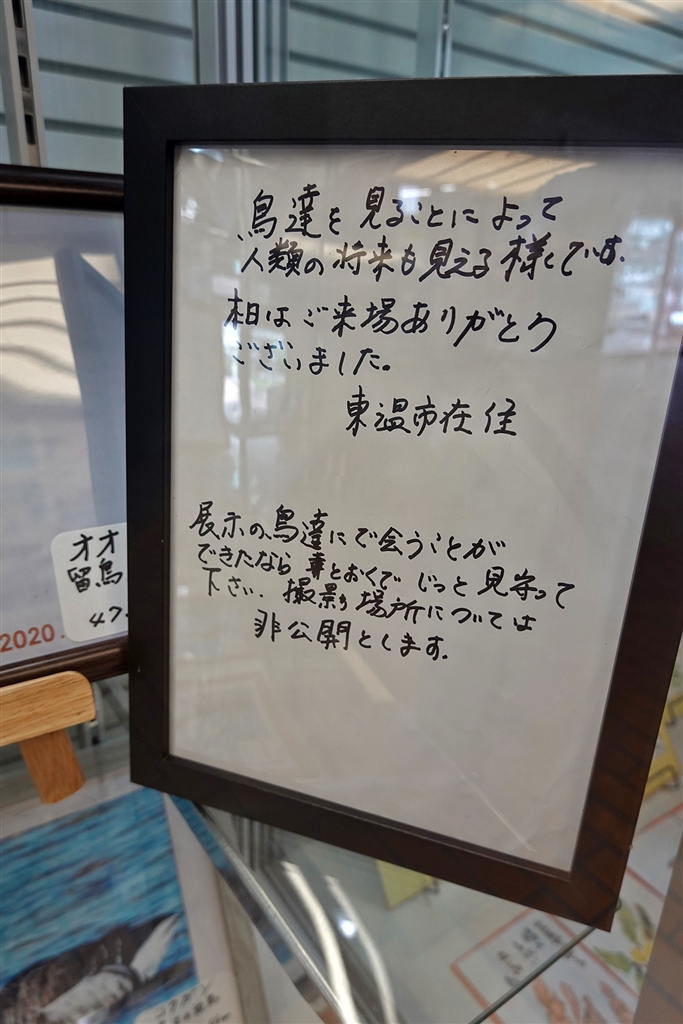 鳥達を見ることによって
人類の将来も見える様しています.
本日はご来場ありがとう
ございました。
東温市在住
展示の鳥達にで会うことが
できたなら 幸とおくで じっと 見守って
下さい. 撮影場所については
非公開とします.
オオ
留鳥
47.
2020.